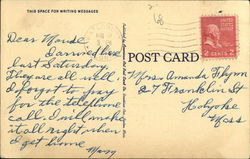 THIS SPACE FOR WRITING MESSAGES
Dear Maude
I arrived here
last Saturday.
They are all well
I forgot to pay
for the telephone
call. I will make
it all right when
I get home
Mary
POST CARD
2 CENTS 2
Mrs. Amanda Flynn
27 Franklin St
Holyoke
Mass